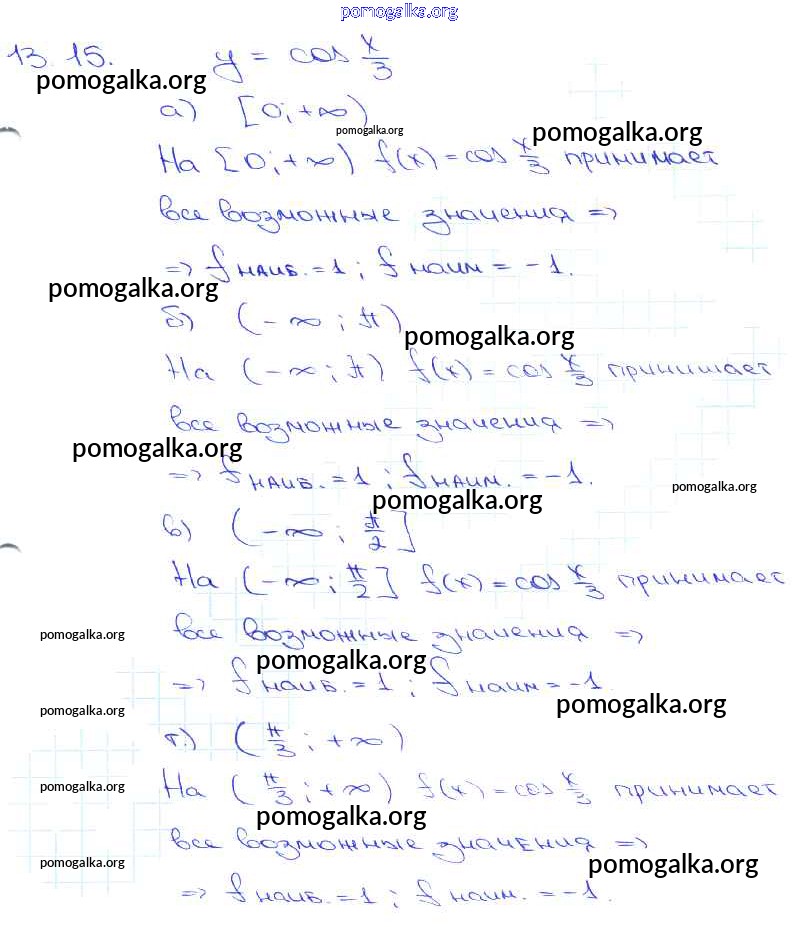 pomogalka.org
13.15. y = cos x/3
pomogalka.org
а) [0; +∞)
pomogalka.org
pomogalka.org
На [0; +∞) f(x) = cos x/3 принимает
все возможные значения =>
=> f наиб. = 1; f наим = -1.
pomogalka.org
б) (-∞; π)
pomogalka.org
На (-∞; π) f(x) = cos x/3 принимает
все возможные значения =>
pomogalka.org
=> f наиб. = 1; f наим. = -1.
pomogalka.org
pomogalka.org
в) (-∞; π/2]
На (-∞; π/2] f(x) = cos x/3 принимает
все возможные значения =>
pomogalka.org
pomogalka.org
=> f наиб. = 1; f наим = -1
pomogalka.org
pomogalka.org
г) (π/3; +∞)
На (π/3; +∞) f(x) = cos x/3 принимает
pomogalka.org
pomogalka.org
все возможные значения =>
pomogalka.org
pomogalka.org
=> f наиб. = 1; f наим. = -1.